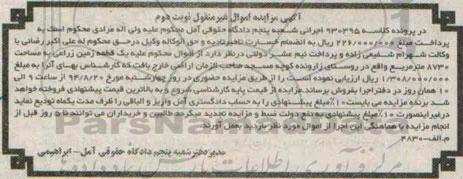 آگهی مزایده اموال غیرمنقول نوبت دوم
در پرونده کلاسه ۹۳۰۳۹۵ اجرائی شعبه پنجم دادگاه حقوقی آمل محکوم علیه ولی اله مرادی محکوم است به
پرداخت مبلغ ۲۲۶/۰۰۰/۰۰۰ ریال به انضمام خسارت تاخیر تادیه و حق الوکاله وکیل در حق محکوم له علی اکبر رضائی با
وکالت شهرام شفیعی زاده و پرداخت نیم عشر دولتی در نظر دارد از اموال محکوم علیه یک قطعه زمین زراعی به مساحت
۸۷۳۰ مترمربع واقع در روستای زارونده کوچه مسجد صاحب الزمان اراضی خارج بافت که کارشناس بهای آنرا به مبلغ
۱/۳۰۸/۰۰۰/۰۰۰ ریال ارزیابی نموده است را از طریق مزایده حضوری در روز چهارشنبه مورخ ۹۴/۸/۲۰ از ساعت ۹ الی
۱۰ همان روز در دفتر اجرا بفروش برساند مزایده از قیمت پایه کارشناسی شروع و به بالاترین قیمت پیشنهادی فروخته خواهد
شد برنده مزایده می بایست ۱۰٪ مبلغ پیشنهادی را به حساب دادگستری آمل واریز و الباقی را ظرف مدت یکماه تودیع نماید
در غیر اینصورت ۱۰٪ مبلغ پیشنهادی به نفع دولت ضبط و مزایده تجدید میگردد طالبین و خریداران می توانند تا ۵ روز قبل از
انجام مزایده با هماهنگی این اجرا از اموال مورد نظر بازدید بعمل آورند.
م.الف-۴۸۳۰
مدیر دفتر شعبه پنجم دادگاه حقوقی آمل-ابراهیمی